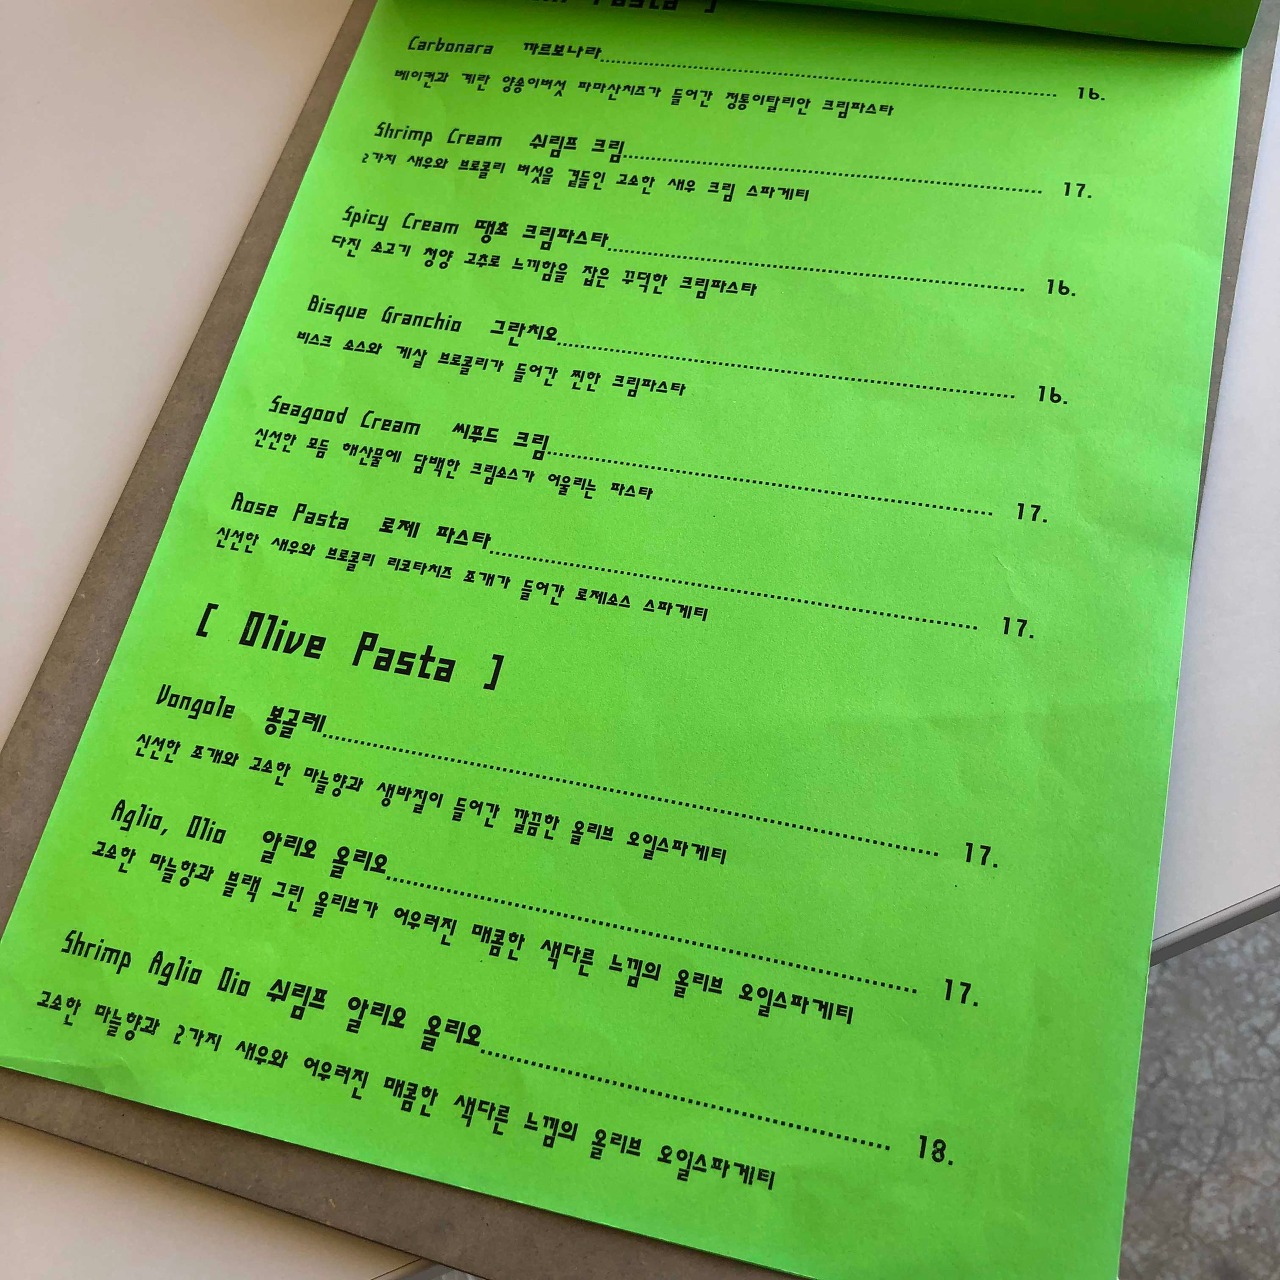 Pasta ]
Carbonara 까르보나라 16.
베이컨과 계란 양송이버섯 파마산치즈가 들어간 정통이탈리안 크림파스타
Shrimp Cream 쉬림프 크림 17.
2가지 새우와 브로콜리 버섯을 곁들인 고소한 새우 크림 스파게티
Spicy Cream 땡초 크림파스타 16.
다진 소고기 청양 고추로 느끼함을 잡은 꾸덕한 크림파스타
Bisque Granchio 그란치오 16.
비스크 소스와 게살 브로콜리가 들어간 찐한 크림파스타
Seagood Cream 씨푸드 크림 17.
신선한 모듬 해산물에 담백한 크림소스가 어울리는 파스타
Rose Pasta 로제 파스타 17.
신선한 새우와 브로콜리 리코타치즈 조개가 들어간 로제소스 스파게티
[ Olive Pasta ]
Vongole 봉골레 17.
신선한 조개와 고소한 마늘향과 생바질이 들어간 깔끔한 올리브 오일스파게티
Aglio, Olio 알리오 올리오 17.
고소한 마늘향과 블랙 그린 올리브가 어우러진 매콤한 색다른 느낌의 올리브 오일스파게티
Shrimp Aglio Oio 쉬림프 알리오 올리오 18.
고소한 마늘향과 2가지 새우와 어우러진 매콤한 색다른 느낌의 올리브 오일스파게티